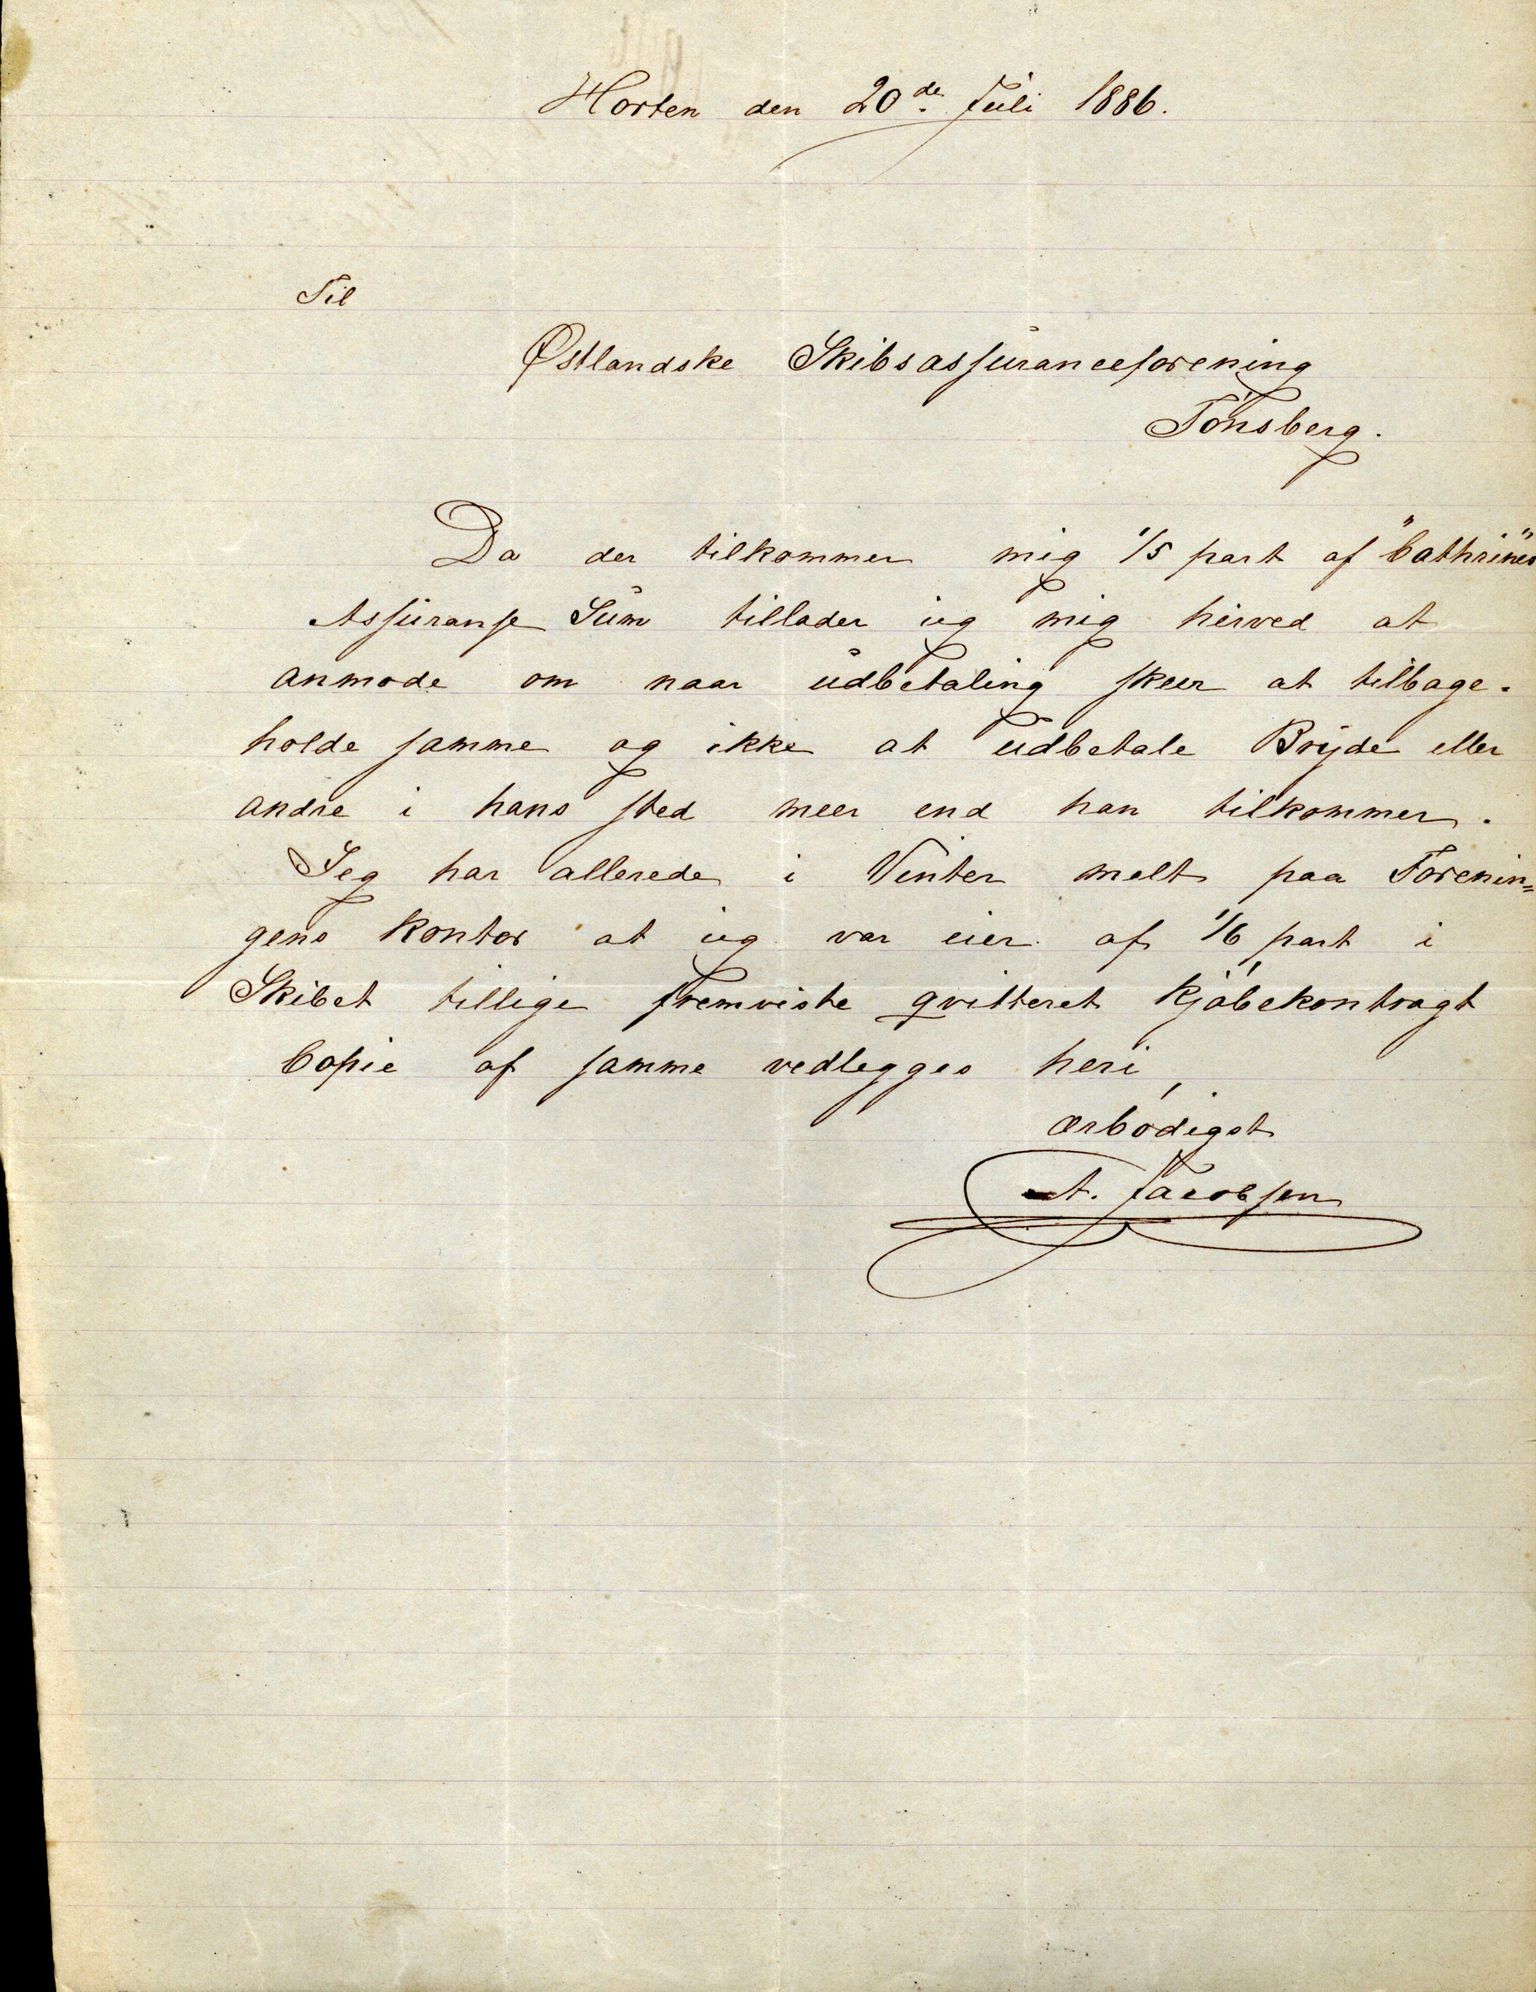 Horten den 20de Juli 1886.
Til
Østlandske Skibsassuranceforening
Tönsberg.
Da der tilkommer mig 1/5 part af "Cathrines"
Assuranse Sum tillader ieg mig herved at
anmode om naar udbetaling skeer at tilbage-
holde samme og ikke at udbetale Bryde eller
andre i hans sted meer end han tilkommer.
Jeg har allerede i Vinter melt paa Forenin=
gens kontor at ieg var eier af 1/6 part i
Skibet tillige fremviste qvitteret kjöbekontragt
Copie af samme vedlegges heri,
ærbödigst
A. Jacobsen